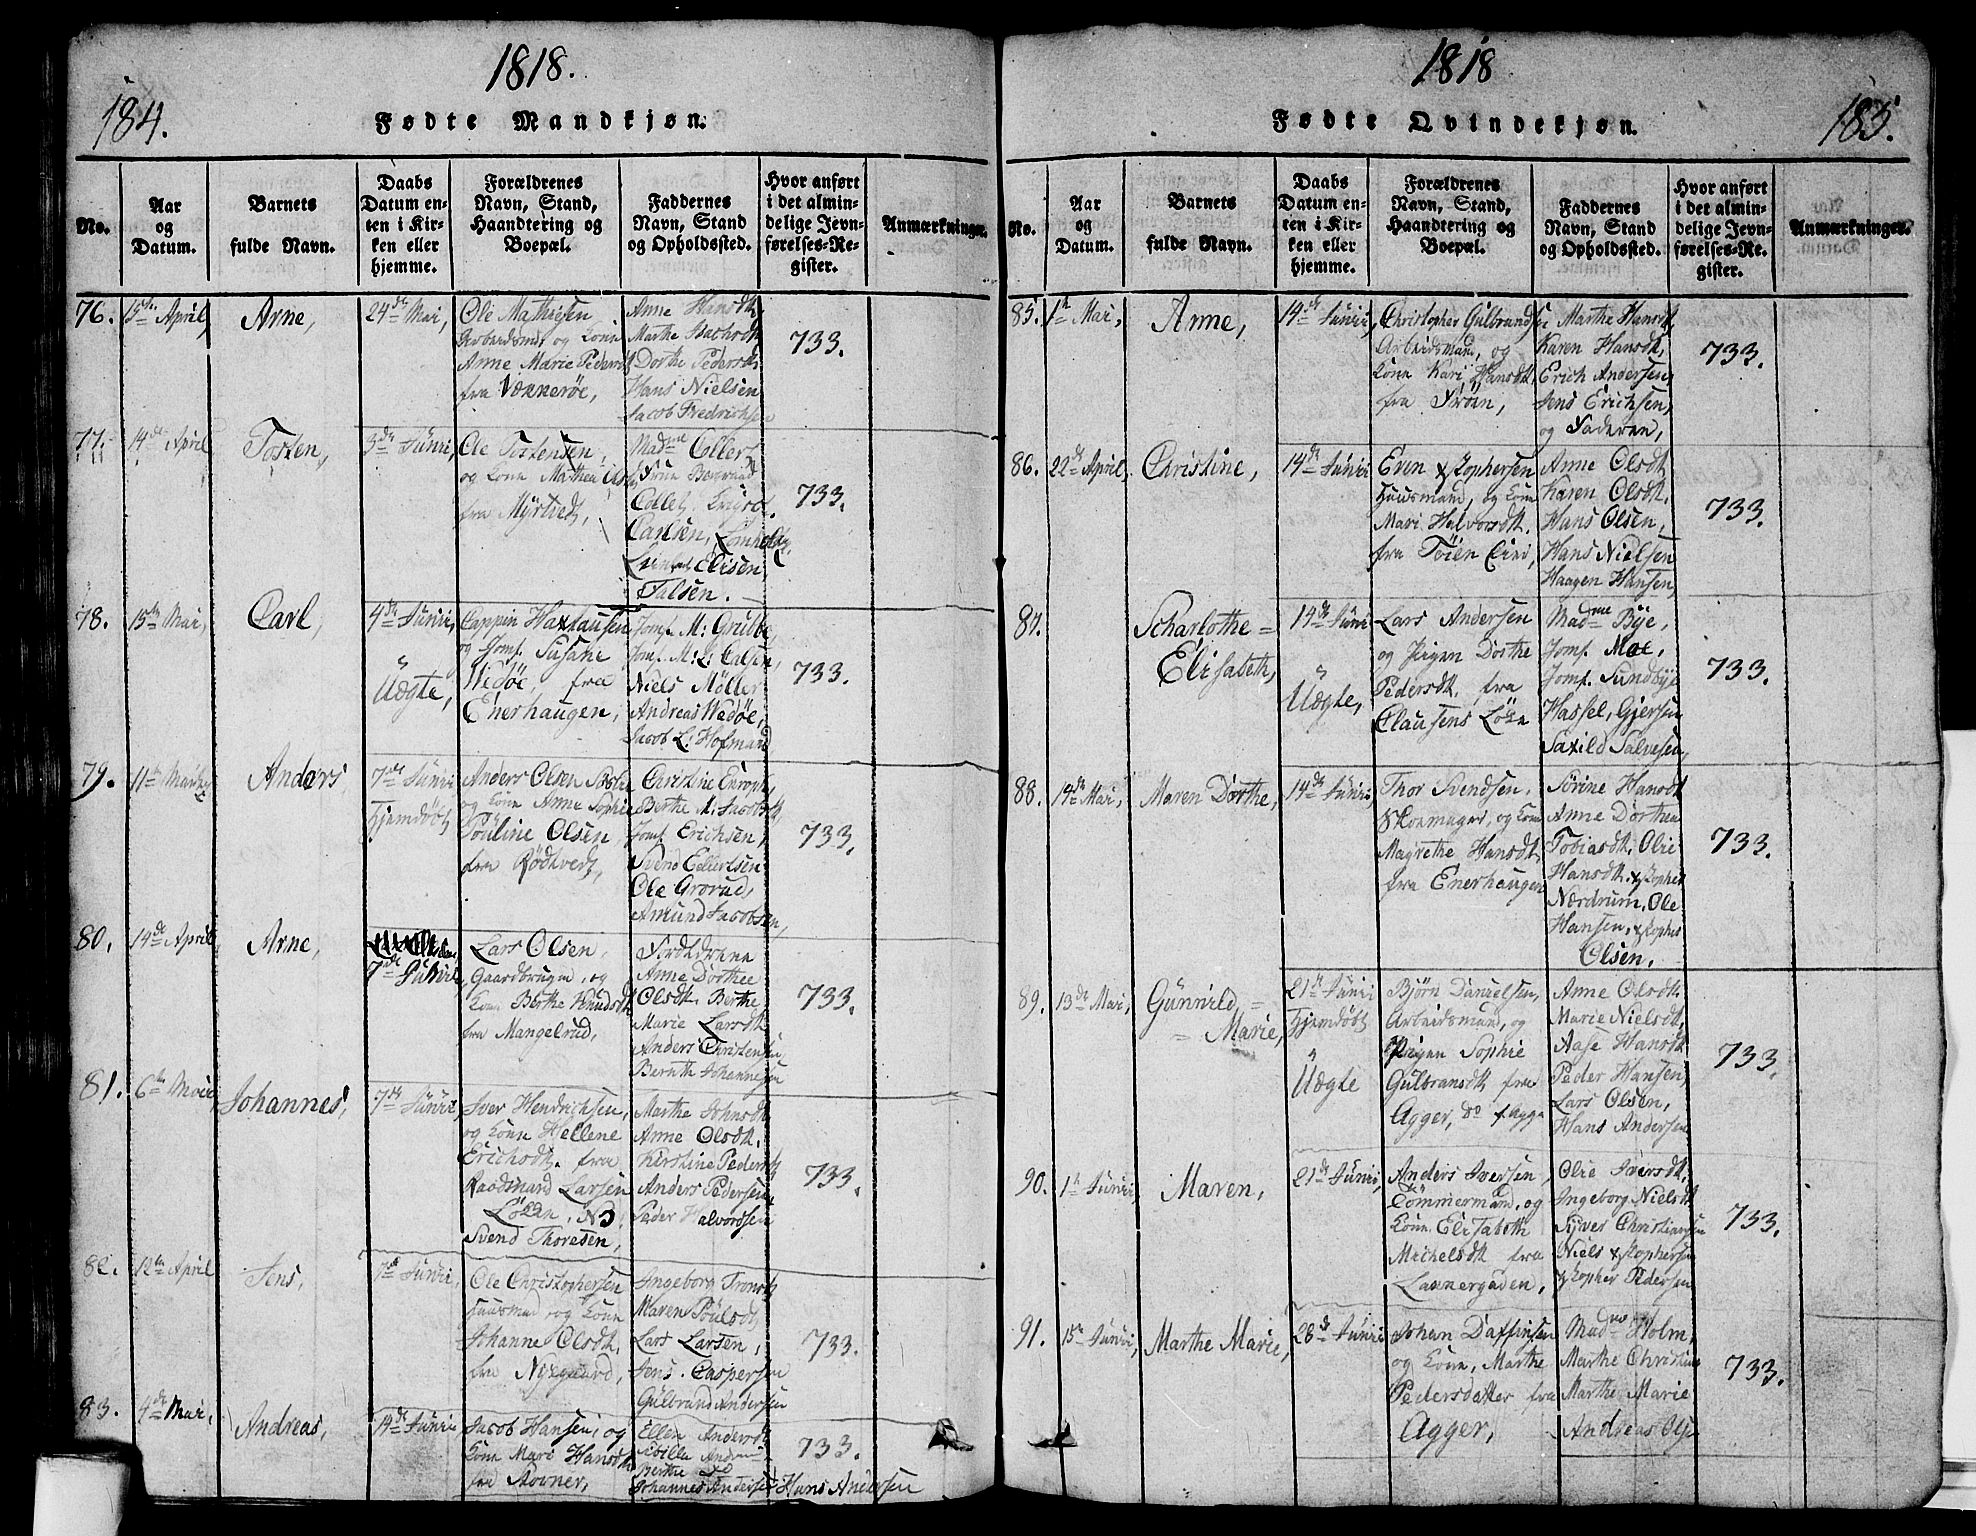 184.
1818.
Fødte Mandkjøn.
No.
Aar og Datum.
Barnets fulde Navn.
Daabs Datum enten i Kirken eller hjemme.
Forældrenes Navn, Stand, Haandtering og Boepæl.
Faddernes Navn, Stand og Opholdssted.
Hvor anført i det almindelige Jevnførelses-Register.
Anmærkninger.
76. 15de April, Arne, 24de Mai,
Ole Mathiesen
Arbeidsm, og Kone
Anne Marie Pedersd
fra Vækkerøe,
Anne Hansdt,
Marthe
Dorthe Pedersdt,
Hans Nielsen
Jacob Fredrichsen
733.
77. 14de April Tosten, 3de Junii,
Ole Tostensen,
og Kone Mathea
fra
Madme Collett
Carlsen,
Elisen,
Falsen.
733.
78. 15de Mai, Carl, 4de Junii,
Uægte,
Cappin Haxtausen
og Jomf. Susane
Wedøe, fra
Enerhaugen,
Jomf. M:
Jomf. M: L:
Niels Møller
Andreas Wedøe,
Jacob L: Hofmand
733.
79. 11te Anders 7de Junii
Hjemdøbt
Anders Olsen
og Kone Anne Sophie
Pouline Olsen
fra Rødtvedt,
Christine
Berthe M: Jacobsdt,
Jomf Erichsen,
Svend
Ole Grorud,
Amund Jacobsen,
733.
80. 14de April Arne,
7de Junii
Lars Olsen,
Gaardbruger, og
Kone Berthe Knudsdt
fra Mangelrud,
Forældrene
Anne Dorthea
Olsdt. Berthe
Marie Larsdt
Anders Christensen
Bernth Johannesen
733.
81. 6te Mai, Johannes, 7de Junii,
Iver Hendrichsen,
og Kone Hellene
Erichsdt. fra
Raadmand Larsen
Løkken,
Svend Thoresen,
Marthe Johnsdt
Anne Olsdt.
Kirstine Pedersdt
Anders Pedersen
Peder Halvorsen
733.
82. 12te April Jens, 7de Junii,
Ole Christophersen
Huusmd og Kone
Johanne Olsdt.
fra Nygaard,
Ingeborg
Maren Poulsdt
Lars Larsen,
Jens Caspersen
Gulbrand Andersen
733.
83. 4de Mai, Andreas, 14de Junii
Jacob Hansen, og
Kone Mari Hansdt
fra Stovner,
Ellen Andersdt
Berthe do
Johannes Andersen Hans Andersen
733.
1818
185.
Fødte Qvindekjøn.
No.
Aar og Datum.
Barnets fulde Navn.
Daabs Datum enten i Kirken eller hjemme.
Forældrenes Navn, Stand, Haandtering og Boepæl.
Faddernes Navn, Stand og Opholdssted.
Hvor anført i det almindelige Jevnførelses-Register.
Anmærkninger.
85. 1te Mai, Anne, 14de Junii,
Christopher Gulbrandsen
Arbeidsmand, og
Kone Kari Hansdt.
fra Frøen,
Marthe Hansdt,
Karen Hansdt,
Erich Andersen,
Jens Erichsen,
og Faderen,
733.
86. 22de April, Christine, 14de Junii
Even Xstophersen
Huusmand, og Kone
Mari Halvorsdt.
fra Tøien Eie,
Anne Olsdt.
Karen Olsdt.
Hans Olsen,
Hans Nielsen
Haagen Hansen,
733.
87. Scharlothe=
Elisabeth, 14de Junii
Uægte,
Lars Andersen
og Pigen Dorthe
Pedersdt. fra
Clausens Løkke
Madme Bye,
Jomf. Moe,
Jomf. Sundbye
Hassel, Gjersen
Saxild Salvesen,
733.
88. 14de Mai, Maren Dorthe, 14de Junii
Thor Svendsen,
Skoemager, og Kone
Magrethe Hansdt
fra Enerhaugen
Sørine Hansdt
Anne Dorthea
Tobiasdt. Olie
Hansdt. Xstopher
Nærdrum, Ole
Hansen, Xstopher
Olsen.
733.
89. 13de Mai, Gunnild=
=Marie, 21de Junii
Hjemdøbt
Uægte
Bjørn Danielsen,
Arbeidsmand, og
Pigen Sophie
Gulbransdt fra
Agger, do f. Agger
Anne Olsdt.
Marie Nielsdt,
Aase Hansdt
Peder Hansen,
Lars Olsen,
Hans Andersen
733.
90. 1te Junii, Maren, 21de Junii,
Anders Iversen,
Tømmermand, og
Kone Elisabeth
Michelsdt fra
Lakkergaden,
Olie Iversdt.
Ingeborg Nielsdt
Syver Christiansen
Niels Xstophersen
Xstopher Pedersen
733.
91. 15de Junii, Marthe Marie, 28de Junii
Johan Daffinsen
og Kone, Marthe
Pedersdatter fra
Agger,
Madme Holm,
Marthe Christine
Marthe Marie
Andreas Olsen
733.